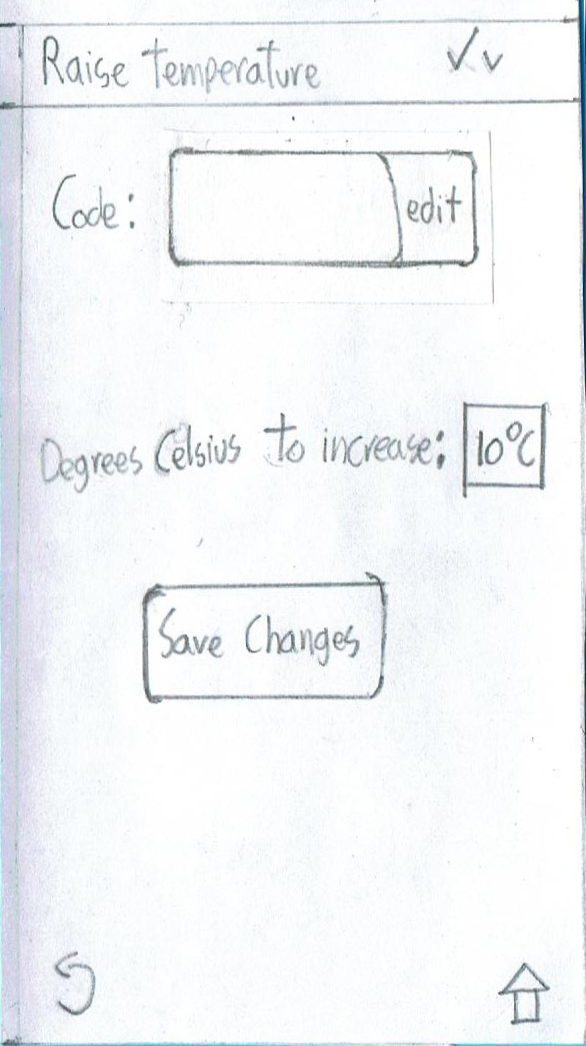 Raise temperature
Code: edit
Degrees Celsius to increase: 10°C
Save Changes